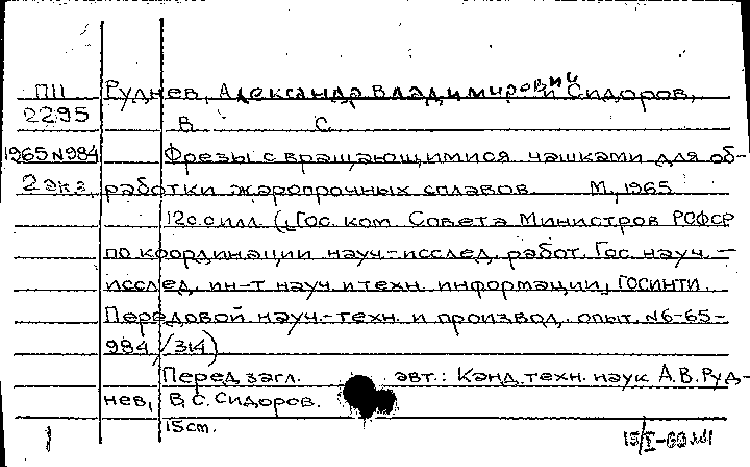 ПП Руднев, Александр Владимирович и Сидоров,
2295 В. С.
1965 №984 Фрезы с вращающимися чашками для об-
2 экз. работки жаропрочных сплавов. М., 1965
12с. с илл. (Гос. ком. Совета Министров РСФСР
по координации науч-исслед. работ. Гос. науч.-
исслед. ин-т науч. и техн. информации, ГОСИНТИ.
Передовой науч.-техн. и производ. опыт. №6-65-
984/314)
Перед загл. авт.: Канд. техн. наук А.В. Руд-
нев, В. С. Сидоров.
15 cm.